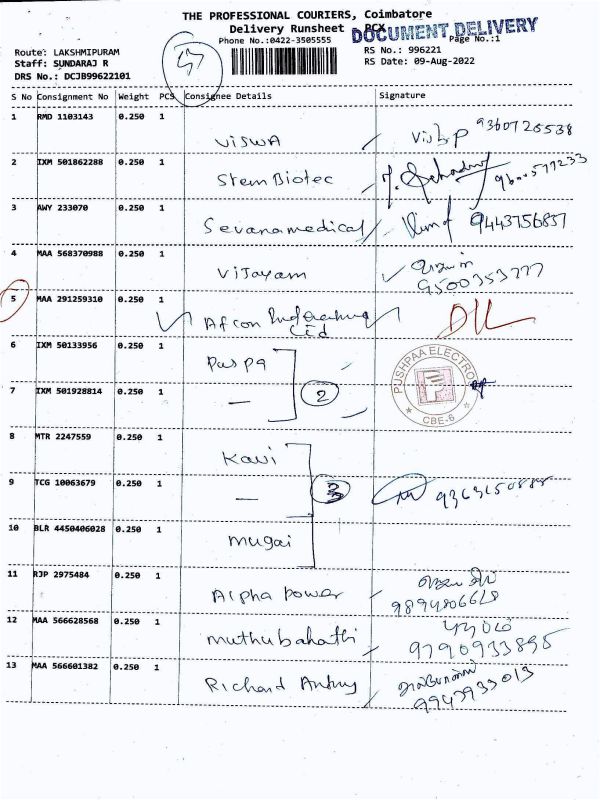 THE PROFESSIONAL COURIERS, Coimbatore
Delivery Runsheet PCX
DOCUMENT DELIVERY
Phone No.:0422-3505555 Page No.:1
Route: LAKSHMIPURAM
Staff: SUNDARAJ R
DRS No.: DCJB99622101
RS No.: 996221
RS Date: 09-Aug-2022
S No Consignment No Weight PCS Consignee Details Signature
1 RMD 1103143 0.250 1 Viswa 9360725538
2 IXM 501862288 0.250 1 Stem Biotec
3 AWY 233070 0.250 1 Sevanamedical 9443756837
4 MAA 568370988 0.250 1 Vijayam
9500353777
5 MAA 291259310 0.250 1 Afcon
Ltd
6 IXM 50133956 0.250 1 Puspa
PUSHPAA ELECTRO
P
CBE-6
7 IXM 501928814 0.250 1 — 2
8 MTR 2247559 0.250 1 Kavi
9 TCG 10063679 0.250 1 — 3
10 BLR 4450406028 0.250 1 Mugai
11 RJP 2975484 0.250 1 Alpha Power
9894806628
12 MAA 566628568 0.250 1 Muthubahathi
9790933895
13 MAA 566601382 0.250 1 Richard Antny
9947933013